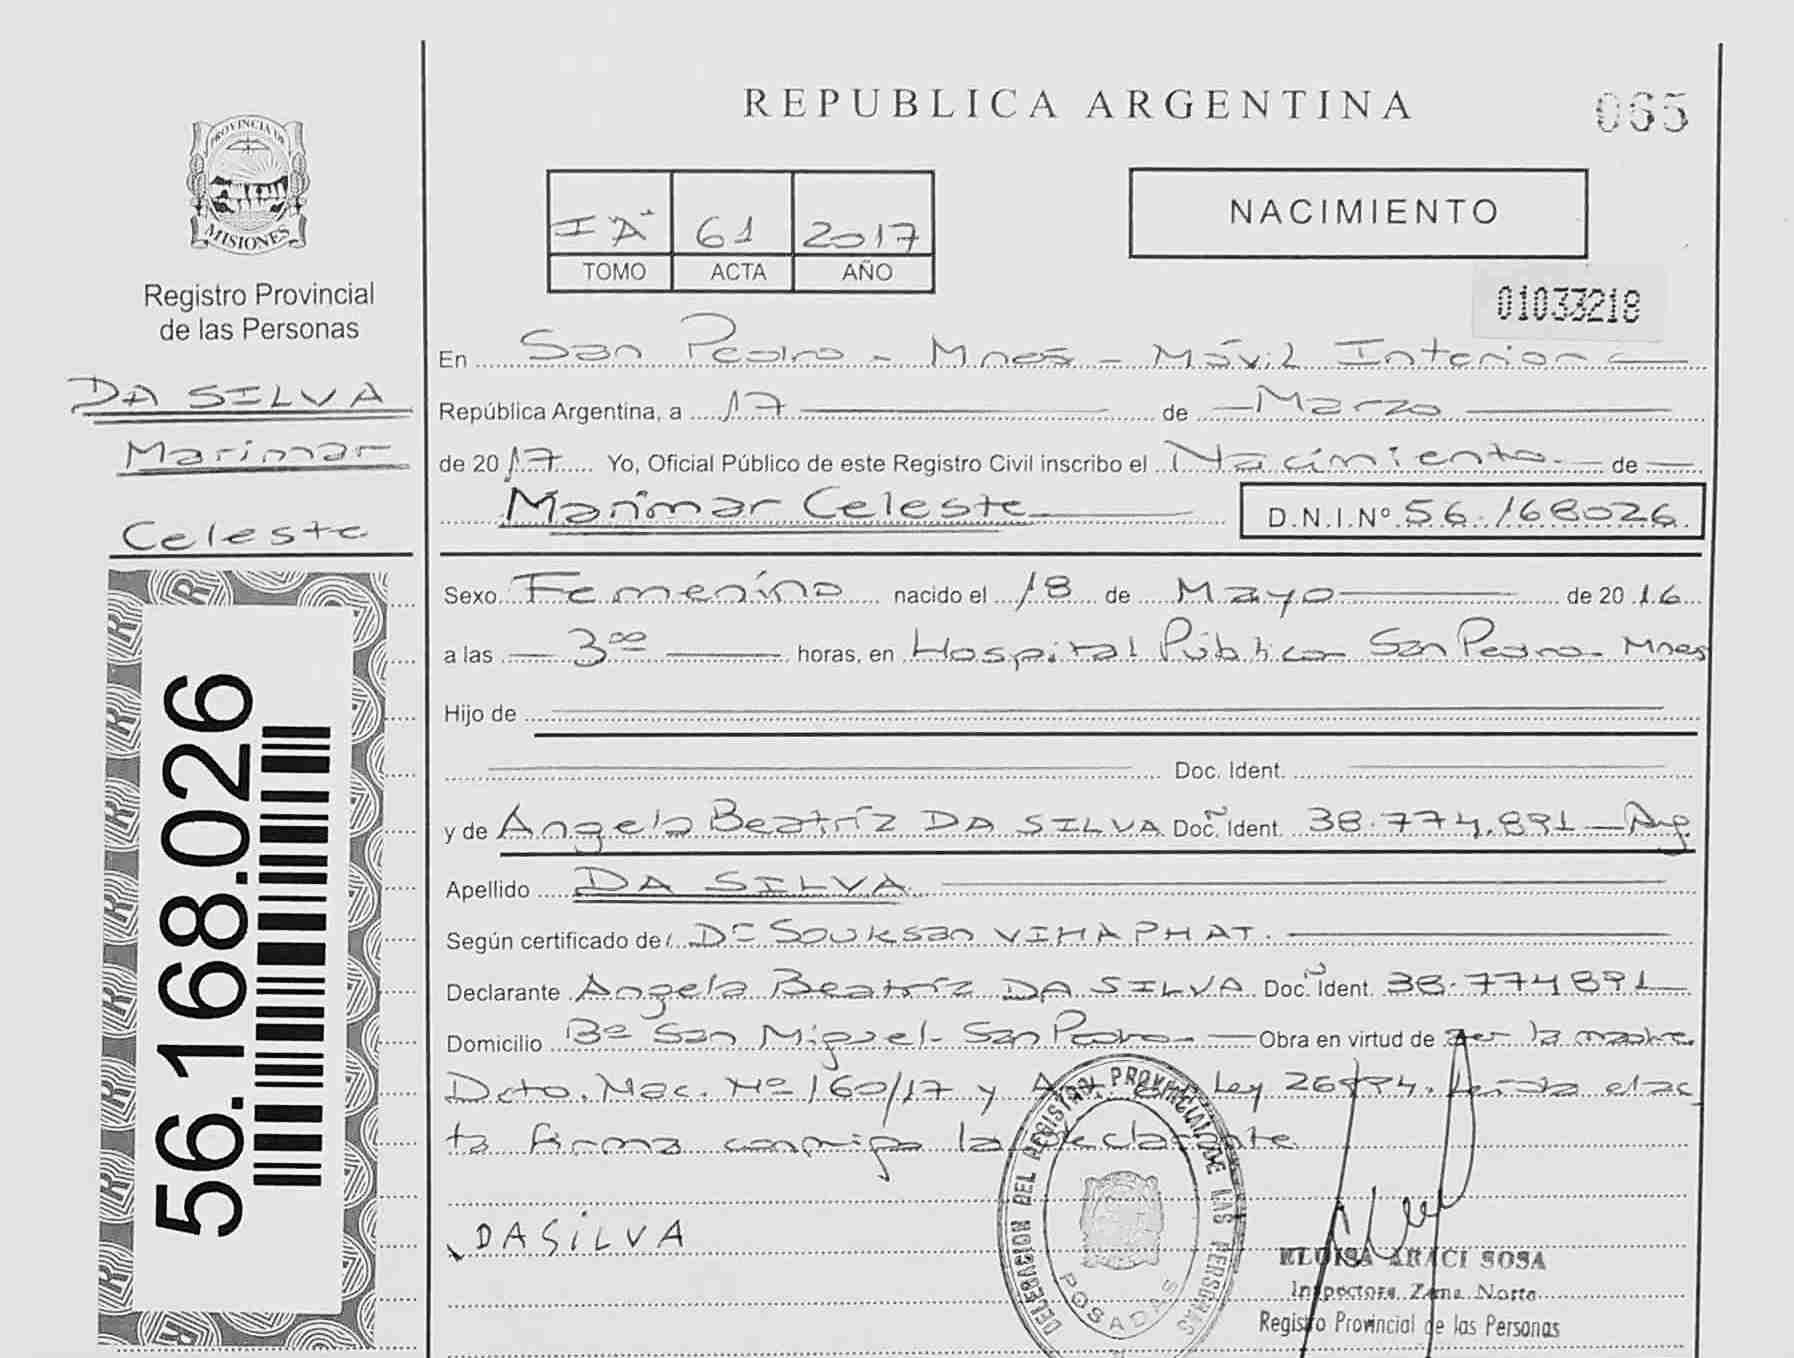 REPUBLICA ARGENTINA
065
PROVINCIA DE
MISIONES
Registro Provincial
de las Personas
DA SILVA
Marimar
Celeste
56.168.026
IA 61 2017
TOMO ACTA AÑO
NACIMIENTO
01033218
En San Pedro - Mnes - Móvil Interior
República Argentina, a 17 de Marzo
de 2017 Yo, Oficial Público de este Registro Civil inscribo el Nacimiento de
Marimar Celeste D.N.I.Nº 56.168026
Sexo Femenino nacido el 18 de Mayo de 2016
a las 3⁰⁰ horas, en Hospital Público San Pedro - Mnes
Hijo de
Doc. Ident.
y de Angela Beatríz DA SILVA Doc. Ident. 38.774.891 - Arg.
Apellido DA SILVA
Según certificado de Dr Souksan VIHAPHAT.
Declarante Angela Beatríz DA SILVA Doc. Ident. 38.774891
Domicilio Bº San Miguel - San Pedro - Obra en virtud de ser la madre
Dcto. Nac. Nº 160/17 y Ley leída el ac
ta firma conmigo la declarante
DASiLVA
DELEGACION DEL REGISTRO PROVINCIAL DE LAS PERSONAS
POSADAS
ELOISA ARACI SOSA
Inspectora Zona Norte
Registro Provincial de las Personas